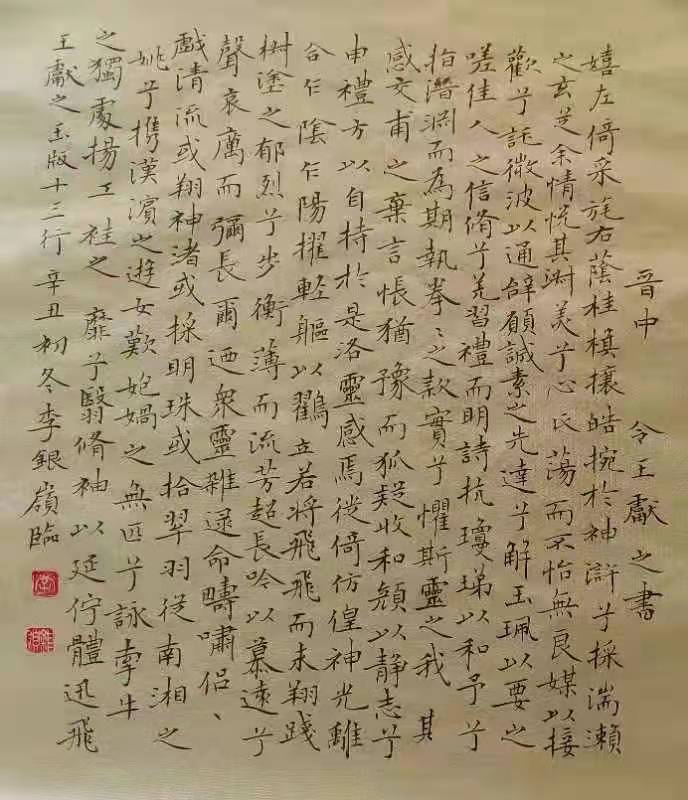 晉中 令王獻之書
嬉左倚采旄右蔭桂槙攘皓捥於神滸兮採湍瀨
之玄芝余情悅其淑美兮心氏蕩而不怡無良媒以接
歡兮託微波以通辭願誠素之先達兮解玉珮以要之
嗟佳人之信脩兮羌習禮而明詩抗瓊珶以和予兮
指潛淵而為期執拳〻之款實兮懼斯靈之我 其
感交甫之棄言悵猶豫而狐疑收和顏以静志兮
申禮方以自持於是洛靈感焉徙倚仿偟神光離
合乍陰乍陽擢輕軀以鶴立若將飛飛而未翔踐
樹塗之郁烈兮步衡薄而流芳超長吟以慕遠兮
聲哀厲而彌長爾迺衆靈雜遝命疇嘯侶〻
戲清流或翔神渚或採明珠或拾翠羽從南湘之
姚兮攜漢濱之遊女歎匏媧之無匹兮詠牽牛
之獨處揚 袿之 靡兮翳脩袖以延佇體迅飛
王獻之玉版十三行 辛丑初冬李銀嶺臨